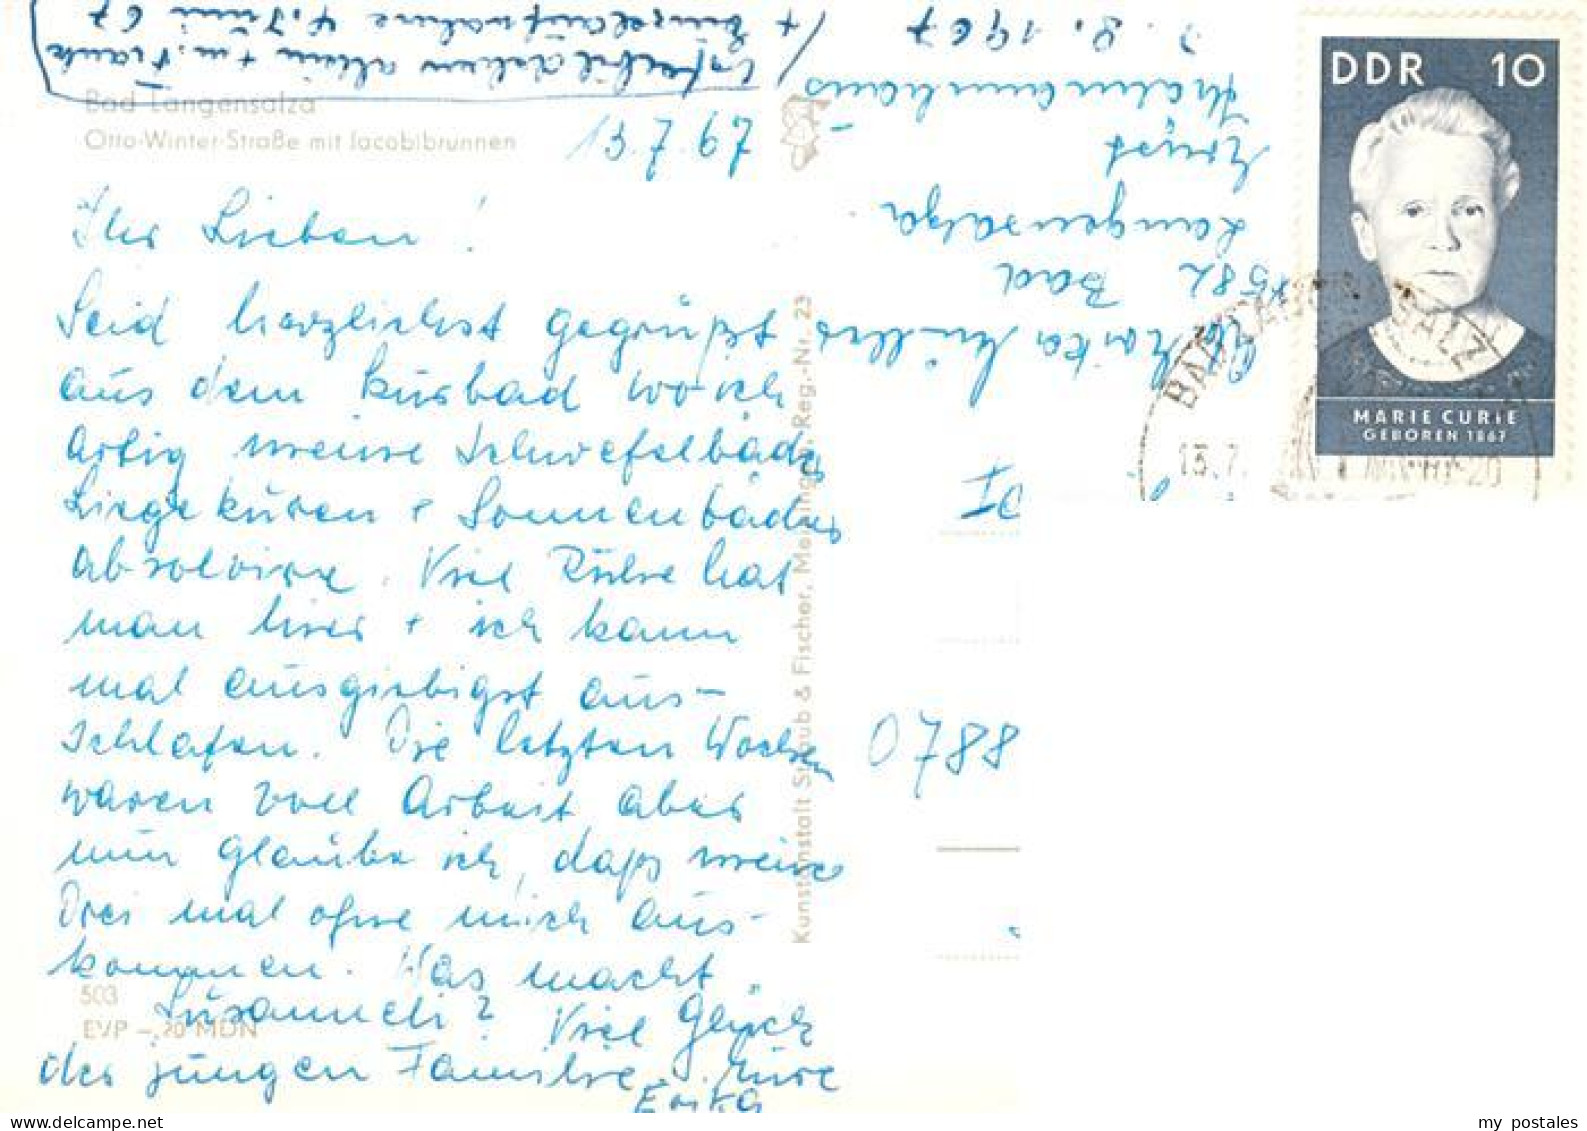 + Einzelaufnahme 4. Juni 67
alein + m. Frank
Bad Langensalza
Otto-Winter-Straße mit Jacobibrunnen
13.7.67
Ihr Lieben!
Seid herzlichst gegrüßt
aus dem Kurbad wo ich
artig meine Schwefelbäder
Liegekuren + Sonnenbäder
absolviere. Viel Ruhe hat
man hier + ich kann
mal ausgiebigst aus-
schlafen. Die letzten Wochen
waren voll Arbeit aber
nun glaube ich, daß meine
Drei mal ohne mich aus-
kommen. Was macht
Susanneli? Viel Glück
der jungen Familie. Eure
Erika
503
EVP -,20 MDN
Kunstanstalt Straub & Fischer, Meiningen, Reg.-Nr. 23
Müller
582 Bad
Langensalza
1967
0788
DDR 10
MARIE CURIE
GEBOREN 1867
BAD LANGENSALZA
13.7.
-20
my postales